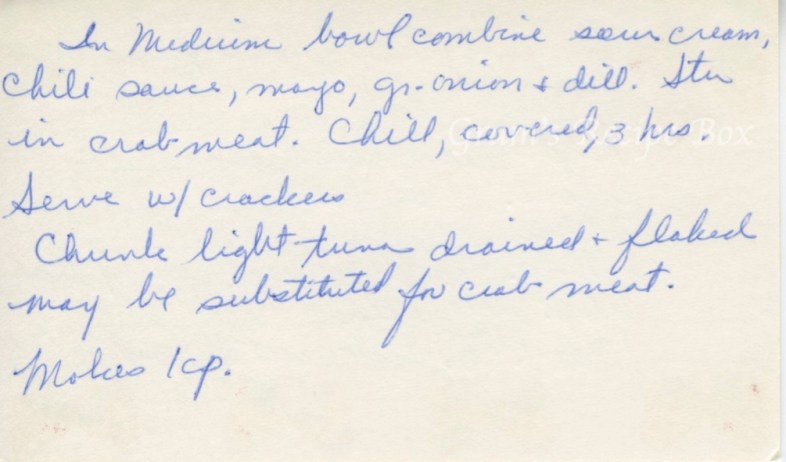 In Medium bowl combine sour cream,
Chili sauce, mayo, gr. onion & dill. Stir
in crab meat. Chill, covered, 3 hrs.
Serve w/ crackers
Chunk light tuna drained + flaked
may be substituted for crab meat.
Makes 1 cp.